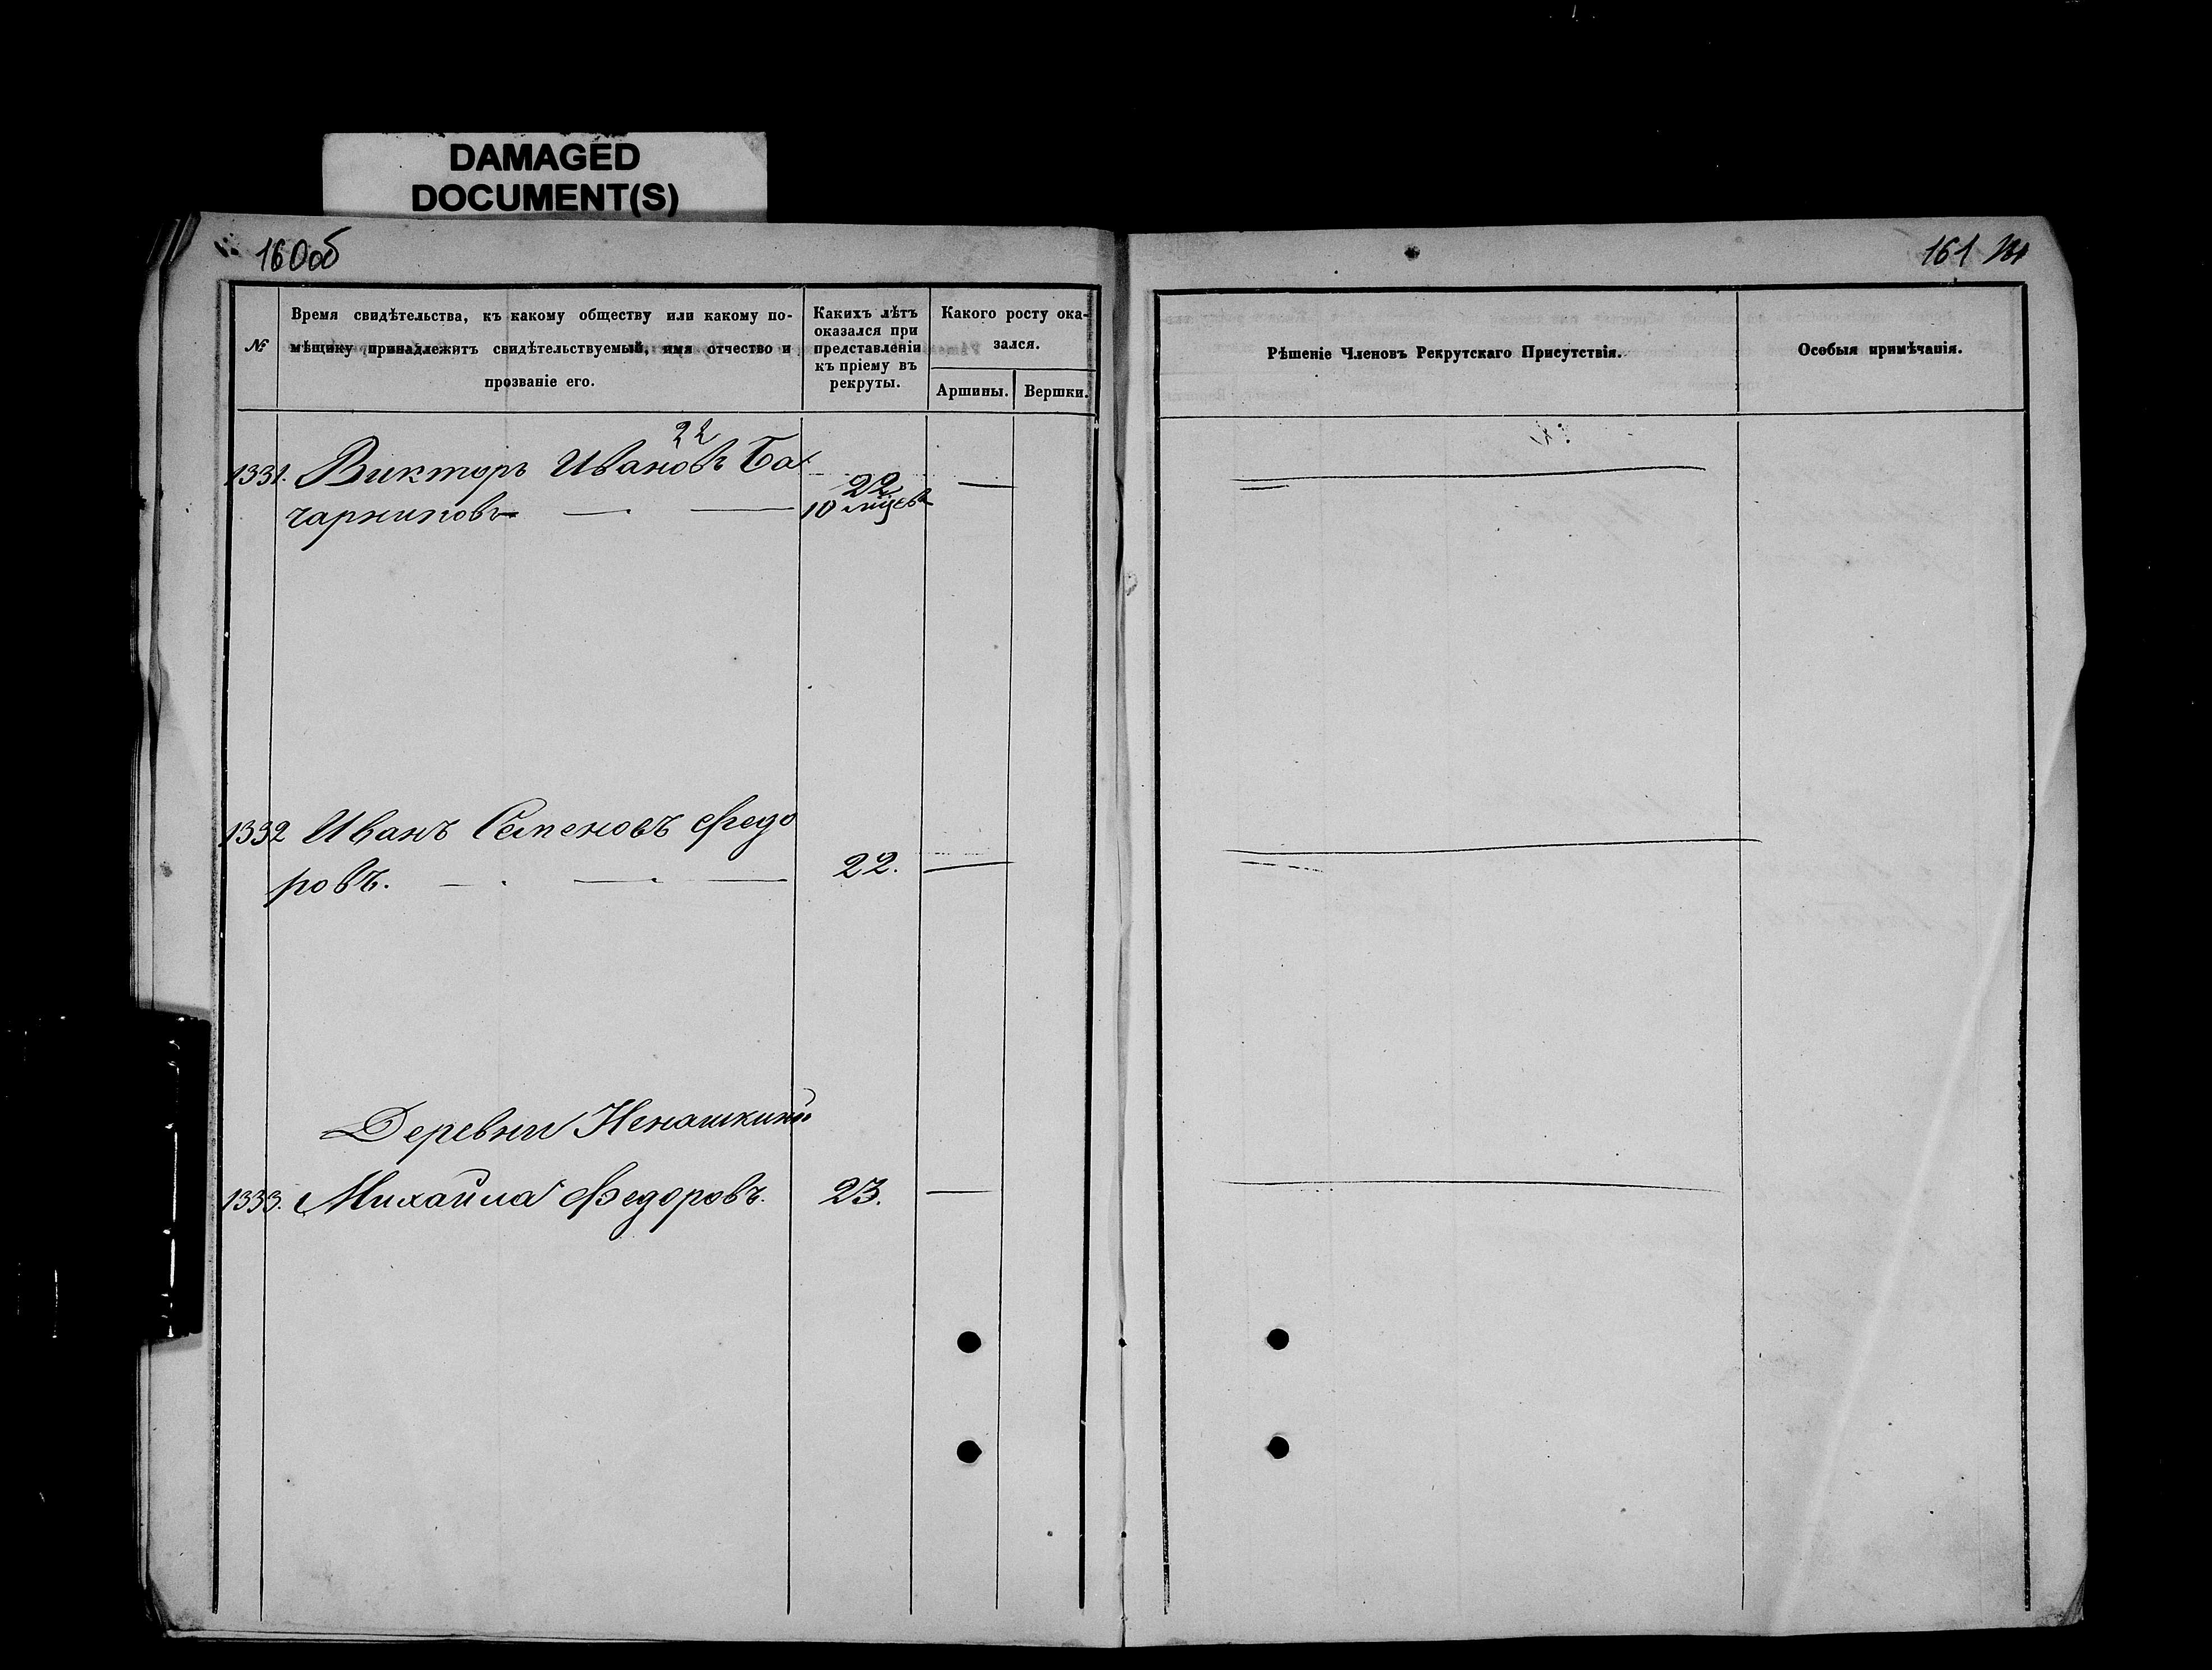 DAMAGED
DOCUMENT(S)
160об
161
№
Время свидѣтельства, къ какому обществу или какому по-
мѣщику принадлежитъ свидѣтельствуемый, имя отчество и
прозваніе его.
Какихъ лѣтъ
оказался при
представленіи
къ пріему въ
рекруты.
Какого росту ока-
зался.
Аршины. Вершки.
Рѣшеніе Членовъ Рекрутскаго Присутствія.
Особыя примѣчанія.
22
1331. Викторъ Ивановъ Ба
22
10
1332 Иванъ Семеновъ Федо
ровъ. 22.
Деревни
1333. Михайла Федоровъ. 23.